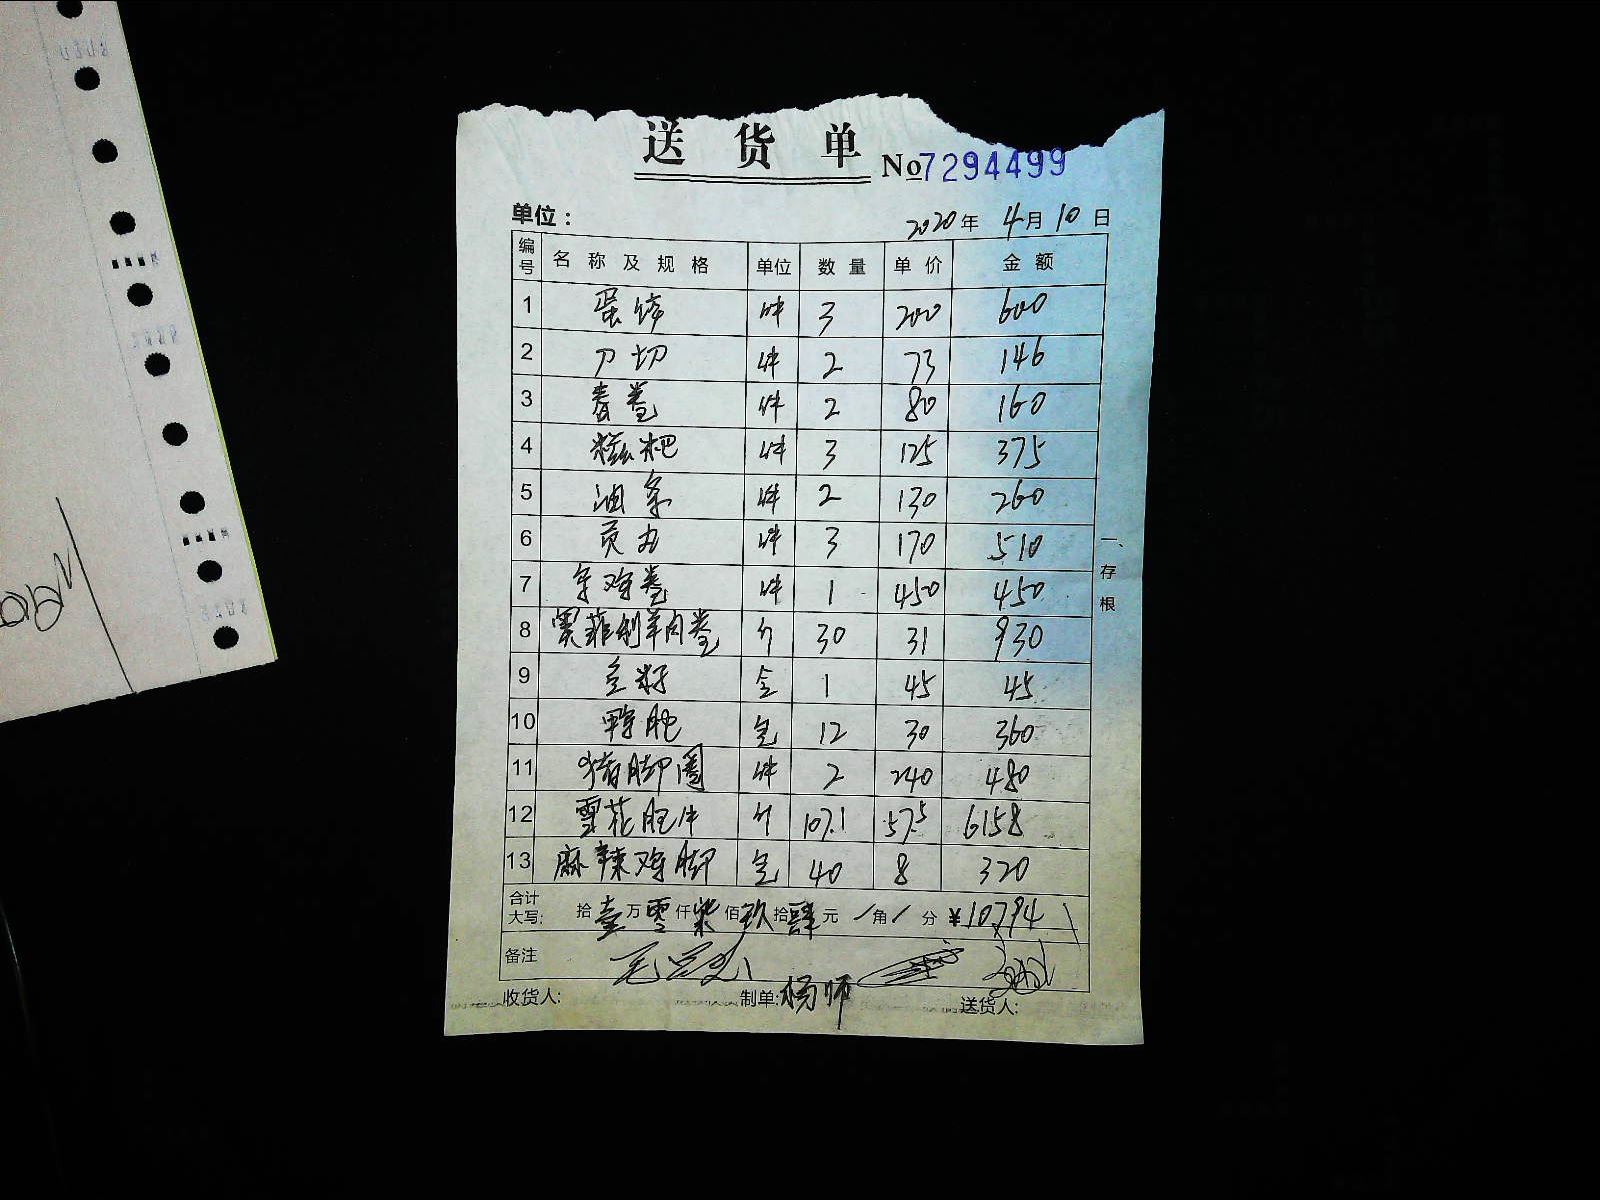 送货单
No7294499
单位： 2020年 4月10日
编号 名称及规格 单位 数量 单价 金额
1 蛋饺 件 3 200 600
2 刀切 件 2 73 146
3 春卷 件 2 80 160
4 糍粑 件 3 125 375
5 油条 件 2 130 260
6 贡丸 件 3 170 510
7 年鸡卷 件 1 450 450
8 羊肉卷 斤 30 31 930
9 1 45 45
10 包 12 30 360
11 猪脚圈 件 2 240 480
12 雪花肥牛 斤 107.1 57.5 6158
13 麻辣鸡脚 包 40 8 320
合计大写: 拾壹万零仟柒佰玖拾肆元/角/分 ¥10794
备注
收货人: 制单:杨师 送货人:
一、存根